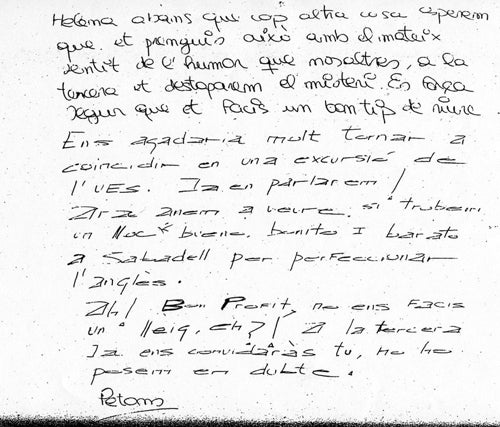 Helena abans que cap altra cosa esperem
que et prenguis això amb el mateix
sentit de l'humor que nosaltres, a la
tercera et destaparem el misteri. És força
segur que et facis un bon tip de riure
Ens agadaria molt tornar a
coincidir en una excursió de
l'UES. Ja en parlarem!
Ara anem a veure si trobem
un lloc* biene, bonito I barato
a Sabadell per perfeccionar
l'anglès.
Ah! Bon Profit, no ens Facis
un lleig, eh?! A la tercera
Ja ens convidaràs tu, no ho
posem en dubte.
Petons